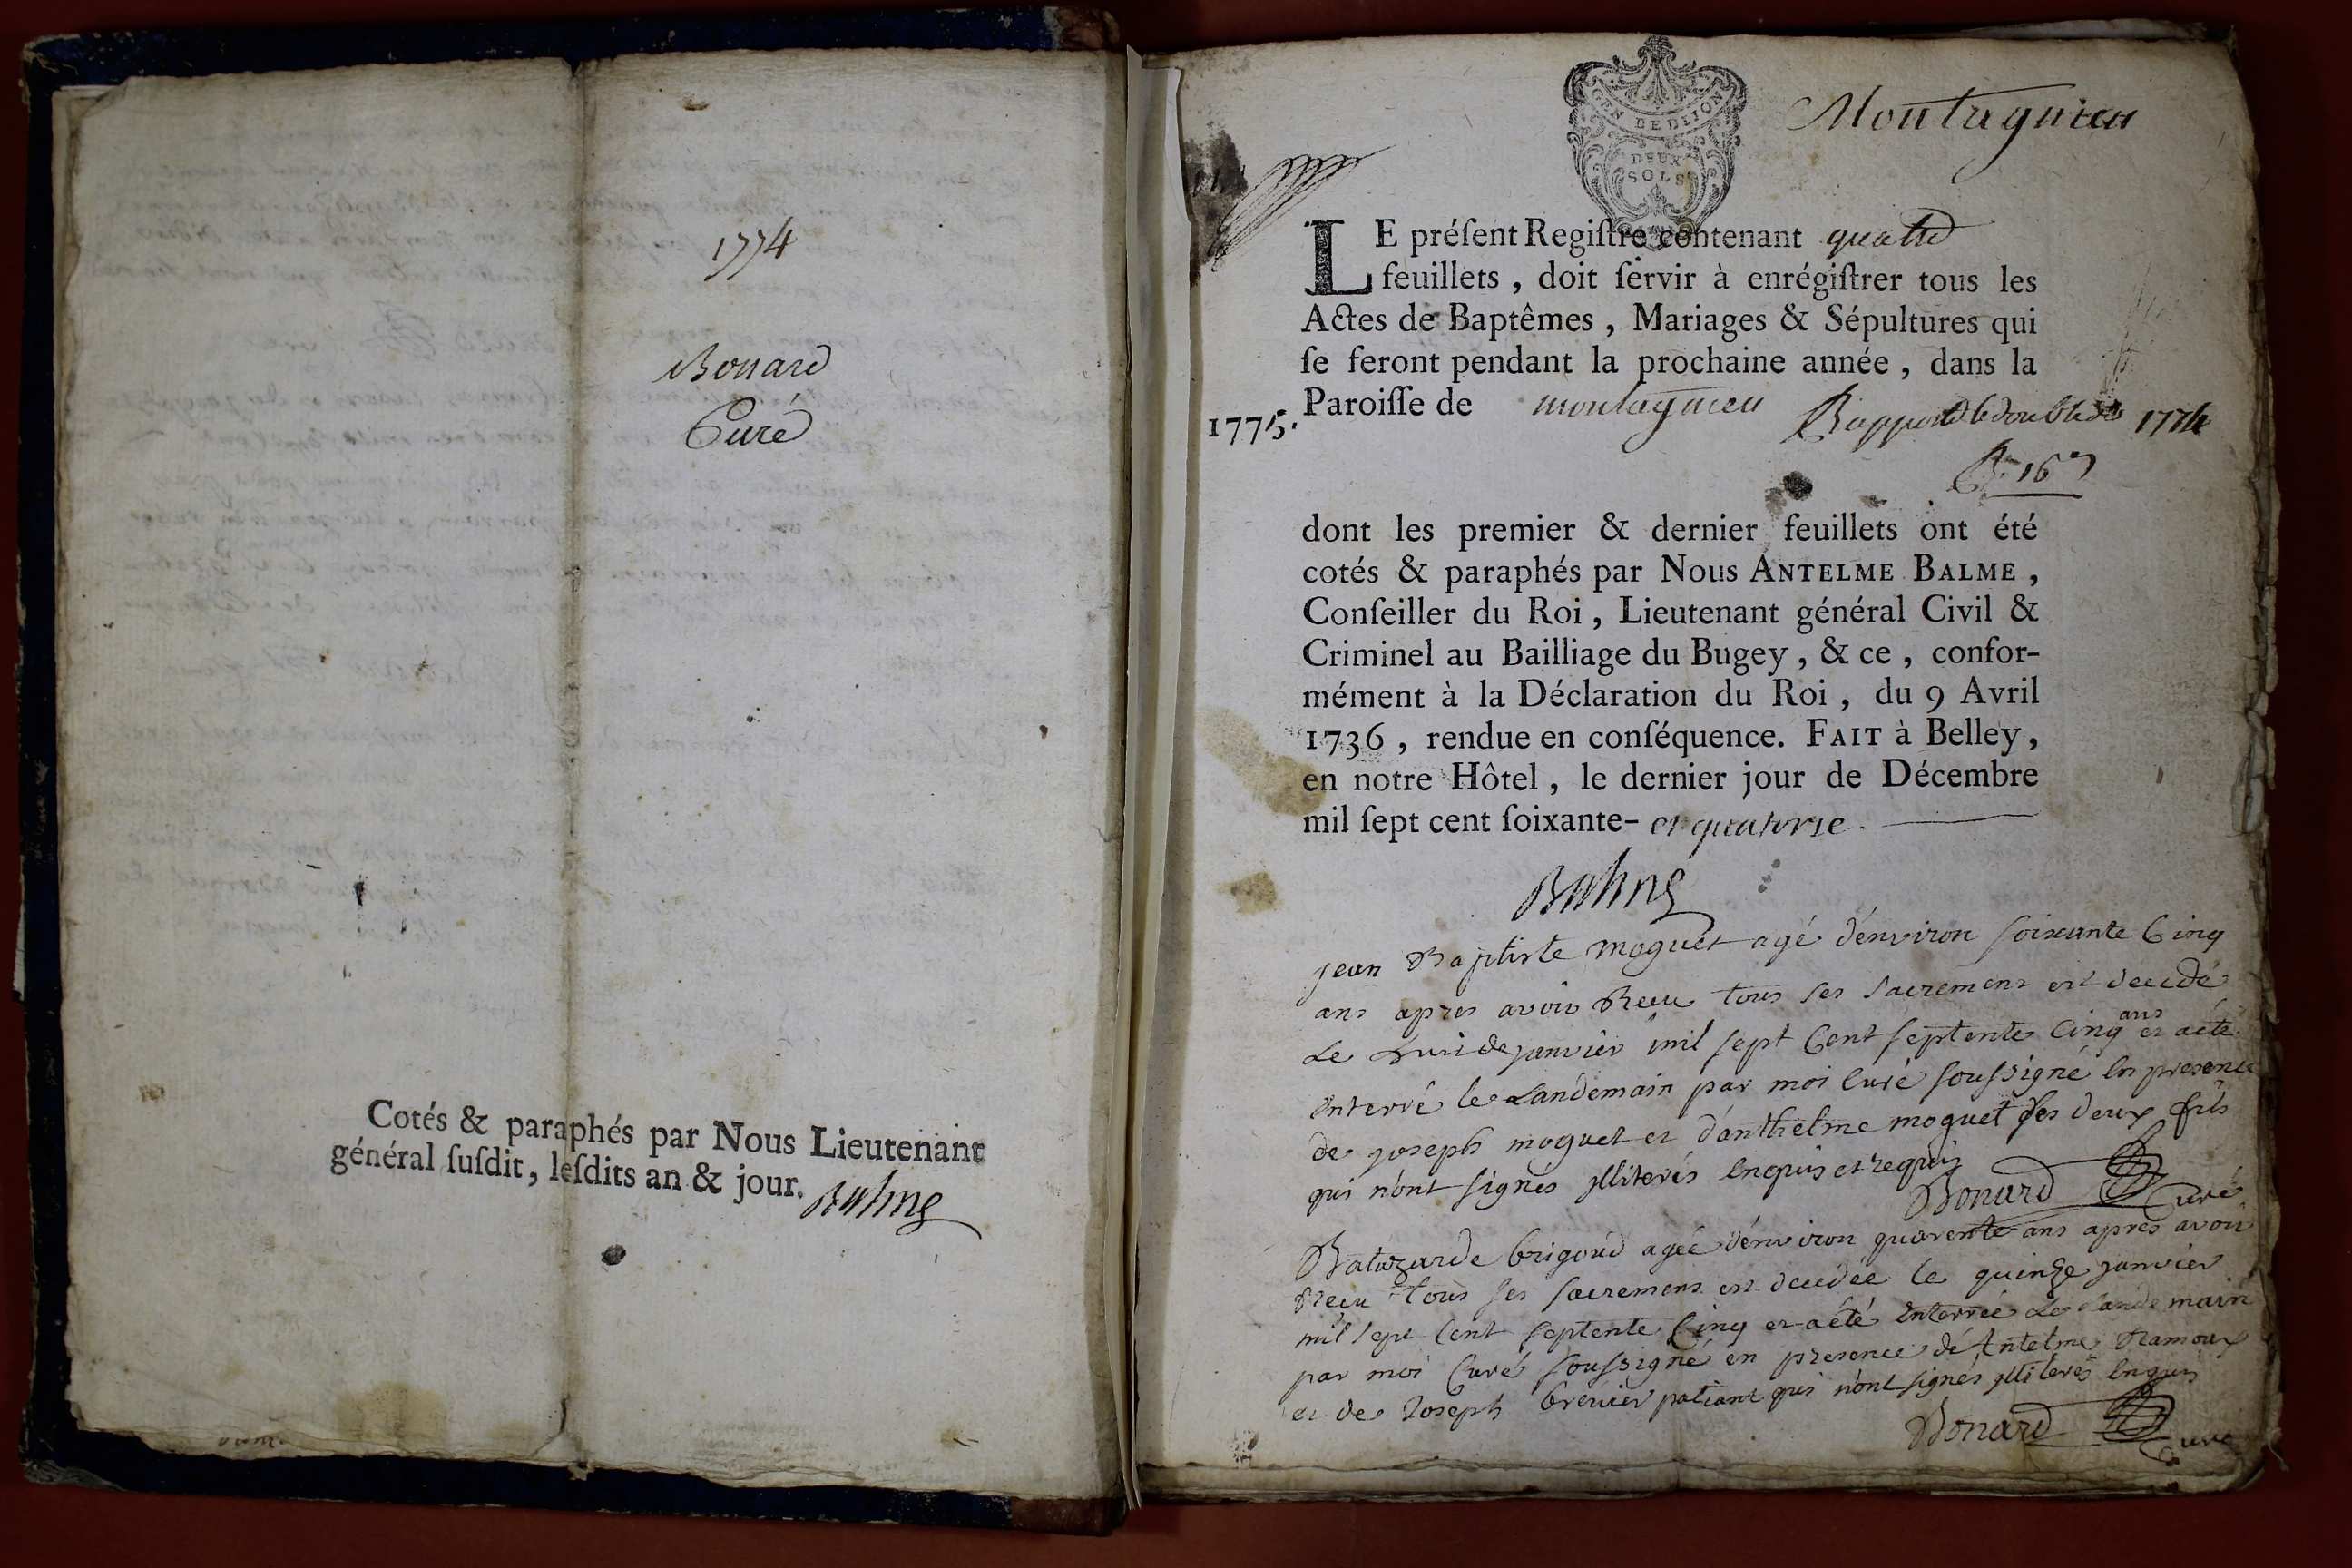 1774
Bonard
Curé
Cotés & paraphés par Nous Lieutenant
général ſuſdit, leſdits an & jour.
Balme
GEN DE DIJON
DEUX
SOLS
Montagnieu
LE préſent Regiſtre contenant quatre
feuillets, doit ſervir à enrégiſtrer tous les
Actes de Baptêmes, Mariages & Sépultures qui
ſe feront pendant la prochaine année, dans la
Paroiſſe de montagnieu
1775.
Rapporté le double de 1774
dont les premier & dernier feuillets ont été
cotés & paraphés par Nous ANTELME BALME,
Conſeiller du Roi, Lieutenant général Civil &
Criminel au Bailliage du Bugey, & ce, confor-
mément à la Déclaration du Roi, du 9 Avril
1736, rendue en conſéquence. FAIT à Belley,
en notre Hôtel, le dernier jour de Décembre
mil ſept cent ſoixante- et quatorze.
Balme
jean Baptiste moguet agé d'environ soixante Cinq
ans apres avoir Recu tous ses sacremens est decedé
Le huit de janvier mil sept Cent septente Cinq ans et aété
enterré le Landemain par moi Curé soussigné en presence
de joseph moguet et d'anthelme moguet ses deux fils
qui n'ont signés illiterés enquis et requis
Bonard Curé
Batazarde brigoud agée d'environ quarente ans apres avoir
Recu tous ses sacremens est decedée le quinze janvier
mil sept Cent septente Cinq et aété enterrée Le Landemain
par moi Curé soussigné en presence d'Antelme Ramoux
et de Joseph brenier patiant qui n'ont signés illiterés enquis
Bonard Curé